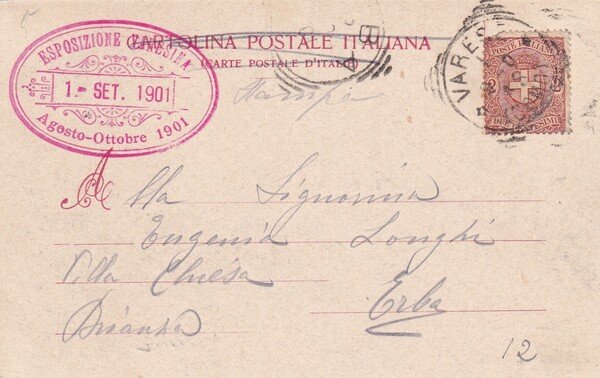 5
CARTOLINA POSTALE ITALIANA
(CARTE POSTALE D'ITALIE)
ESPOSIZIONE VARESINA
1-SET. 1901
Agosto-Ottobre 1901
VARESE
POSTE ITALIANE
2 2
DUE CENTESIMI
Stampa
Alla Signorina
Eugenia Longhi
Villa Chiesa Erba
Brianza
12